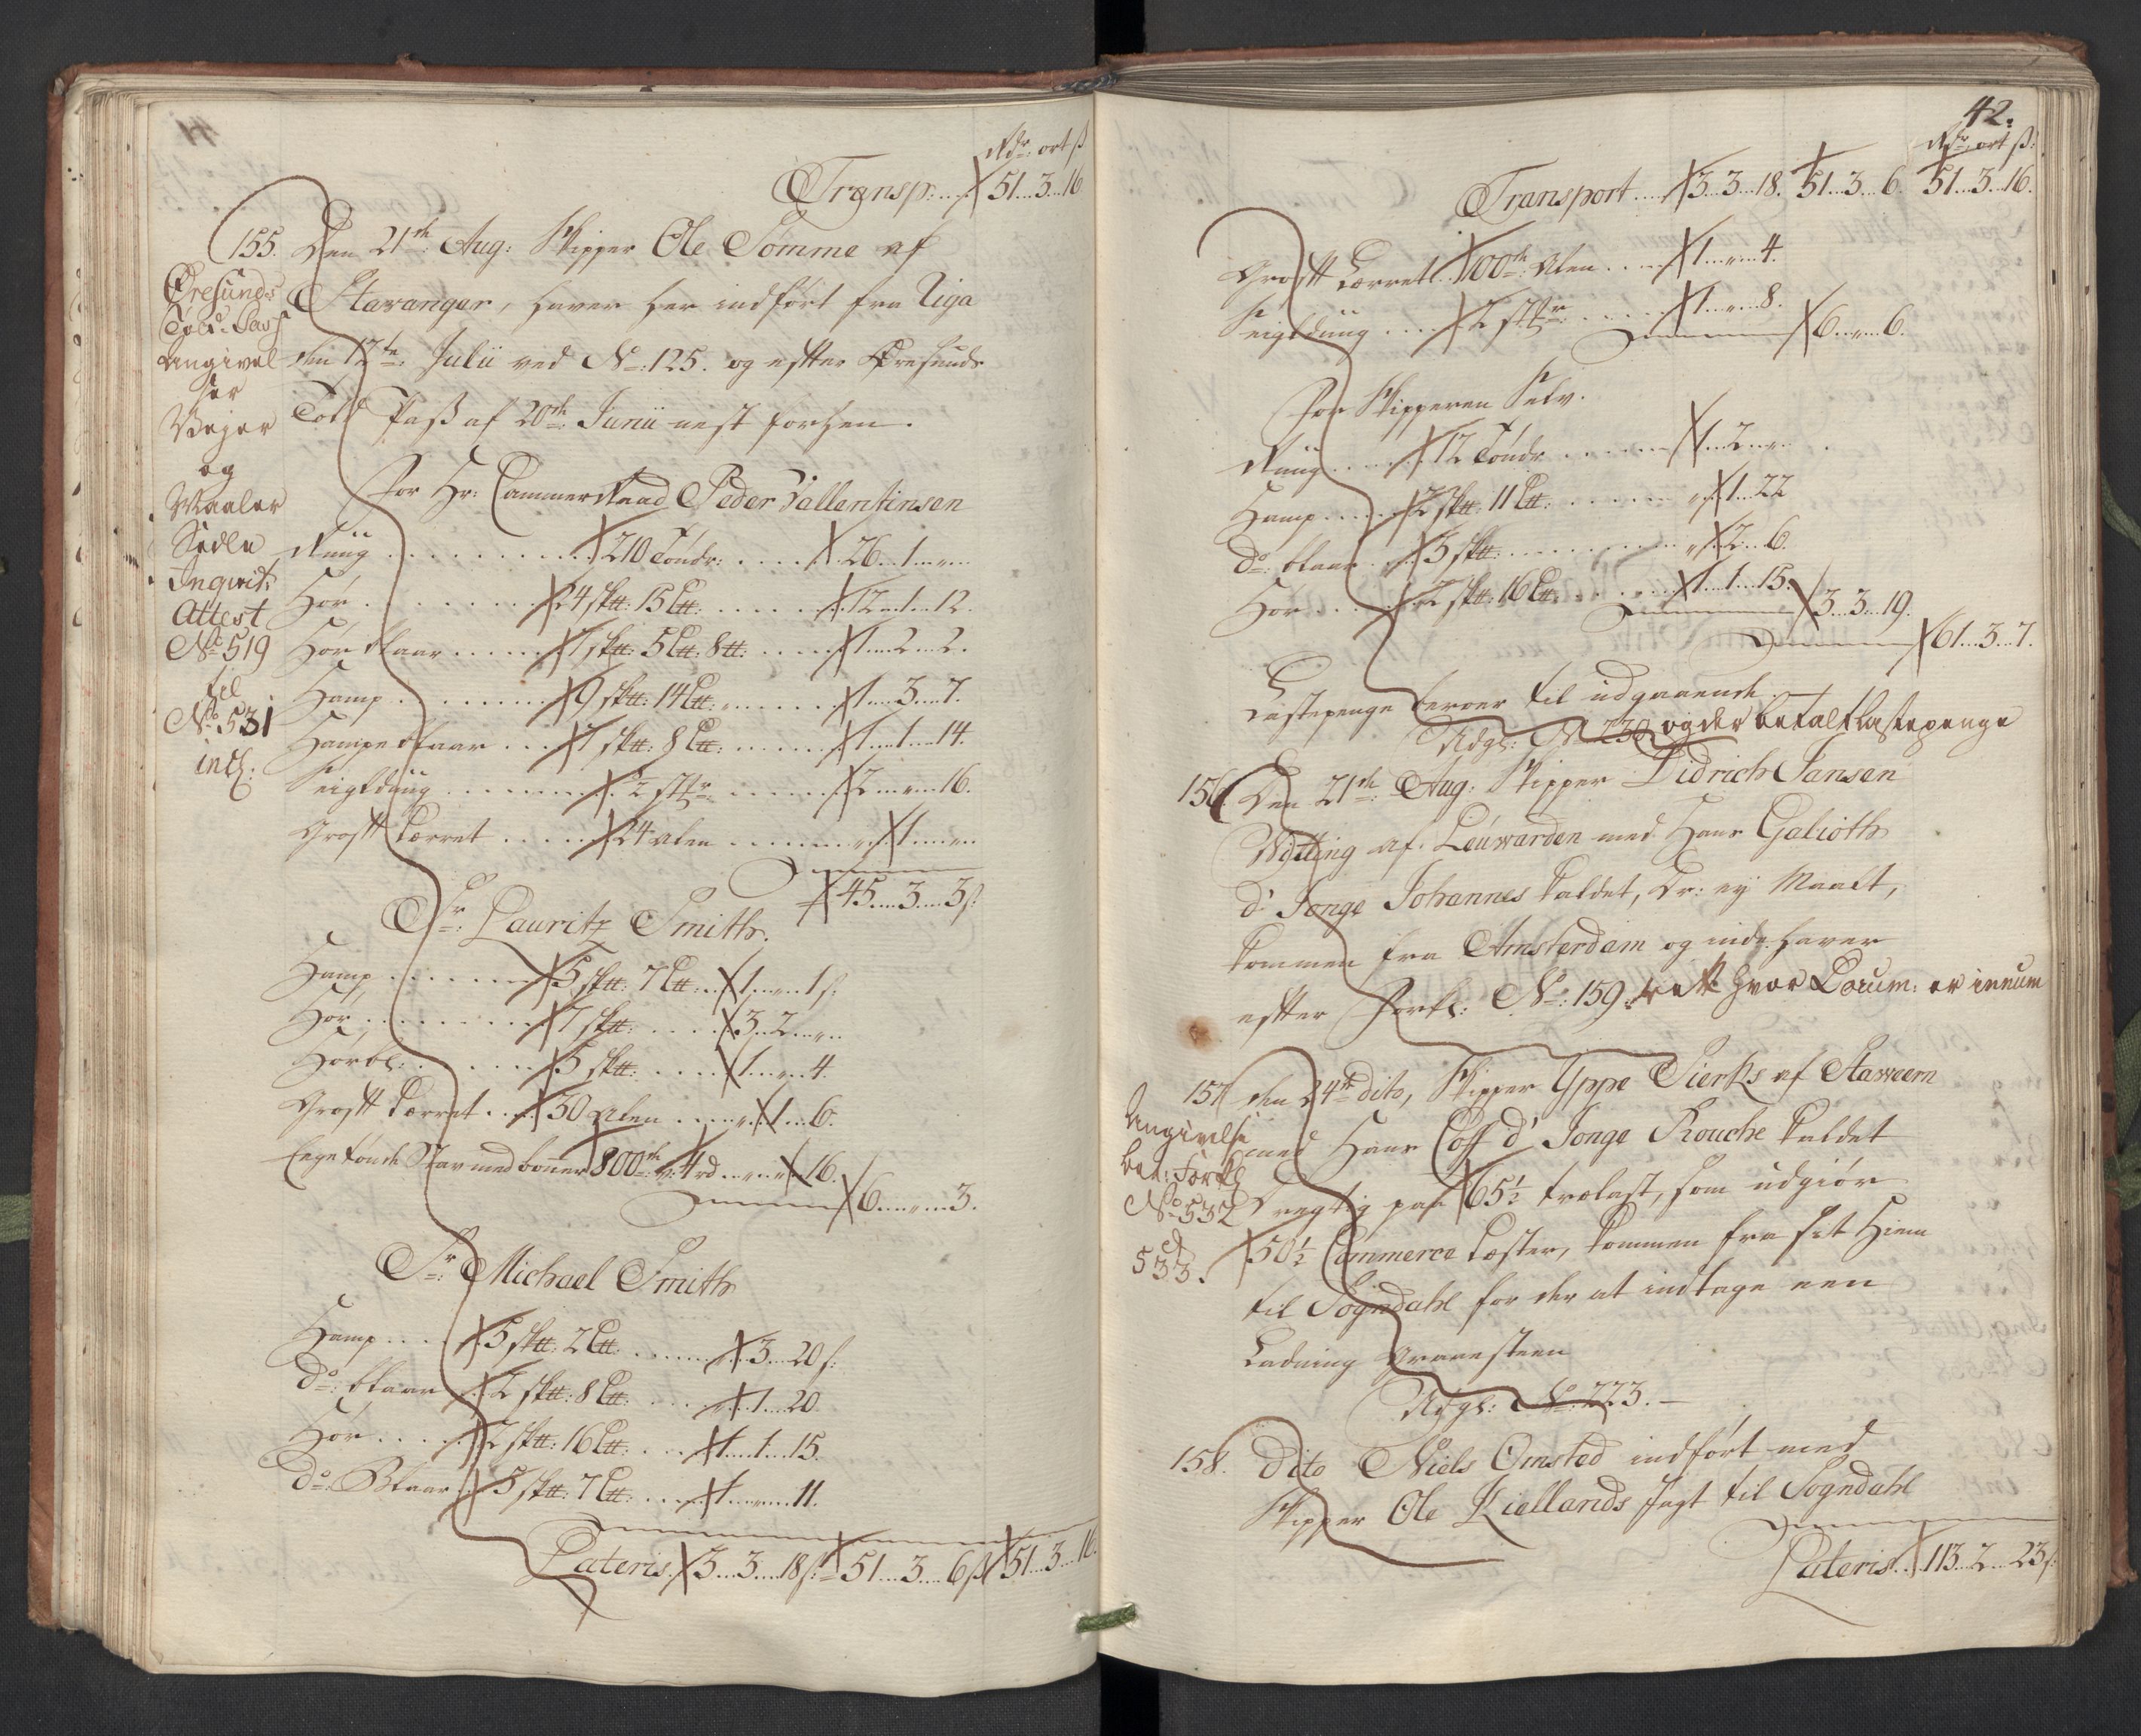 Rdr: ort ß
Transp: .... 51...3...16
155. Den 21de: Aug: Skipper Ole Tomme af
Stavanger, haver her indført fra Riga
den 12te: Julii ved No: 125. og efter Øresunds
Told Pass af 20de: Junii nest forhen.
Øresunds
Told: Pass
Angivel
ser
Vejer
og
Maaler
Sedle
Inqvit:
Attest
No 519
til
No. 531
incl:
For Hr: Cammer Raad Peder Vallentinsen
Rüug ........ 210 Tönde: .... 26...1..."
Hör ....... 24 sk℔: 15 L℔: ...... 12...1...12.
Hör blaar ..... 7 sk℔: 5 L℔: 8 ℔: ..... 1...2...2.
Hamp ....... 9 sk℔: 14 L℔: ...... 1...3...7.
Hampe blaar ... 7 sk℔: 8 L℔: ...... 1...1...14.
Seigldüug ....... 2 stkr: ...... 2..."...16.
Groft Lærret ..... 24 Alen ...... "...1..."
45...3...3ß
Sr: Lauritz Smith.
Hamp ...... 5 sk℔: 7 L℔: .. 1..."...1 ß.
Hör ....... 7 sk℔: .... 3...2..."
Hörbl: ..... 5 sk℔: .... 1..."...4.
Groft Lærret .... 50 Alen .... "...1...6.
Eege tönde Stav med bonner 800de: ... "..."...16.
6..."...3.
Sr: Michael Smith
Hamp .... 5 sk℔: 2 L℔: ....... "...3...20 ß:
do: blaar .. 2 sk℔: 8 L℔: .... "...1...20.
Hör ..... 2 sk℔: 16 L℔: .... 1...1...15.
do: Blaar .. 5 sk℔: 7 L℔: .... 1..."...11.
Lateris 3...3...18ß: 51...3...6ß 51...3...16.
42.
Rdr: ort ß:
Transport .... 3...3...18. 51...3...6. 51...3...16.
Groft Lærret 100de: Alen .... 1..."...4.
Seigldüug .... 2 stkr: ..... 1..."...8.
6..."...6.
For Skipperen Selv.
Rüug ..... 12 Tönde ...... 1...2..."
Hamp ..... 2 sk℔: 11 L℔: ..... "...1...22
do: blaar ... 5 sk℔: ....... "...2...6.
Hör .... 2 sk℔: 16 L℔: .... 1...1...15.
3...3...19.
61...3...7.
Lastepenge beroer til udgaaende.
Udgl: No 230 og der betalt Lastepenge
156. Den 21de: Aug: Skipper Didrich Jansen
Wytting af Leüwarden med Hans Galioth
d' Jonge Johannes kaldet, Dr: ey Maalt,
kommen fra Amsterdam og inde haver
efter Forkl: No: 159. hvor Docum: er innum
157. den 24de dito, Skipper Yppe Tierks af Staweern
med Hans Coff d' Jonge Rouche kaldet
Drægtig paa 65½ trælast, som udgiör
50½ Commerce Læster, kommen fra sit Hiem
til Sogndahl for der at indtage een
Ladning Graaesteen
Udgl: No: 223.
Angivelse
ber: Forkl
No 532
et
533.
158. dito Niels Omsted indført med
Skipper Ole Kiellands Jagt til Sogndahl
Lateris .. 113...2...23ß: